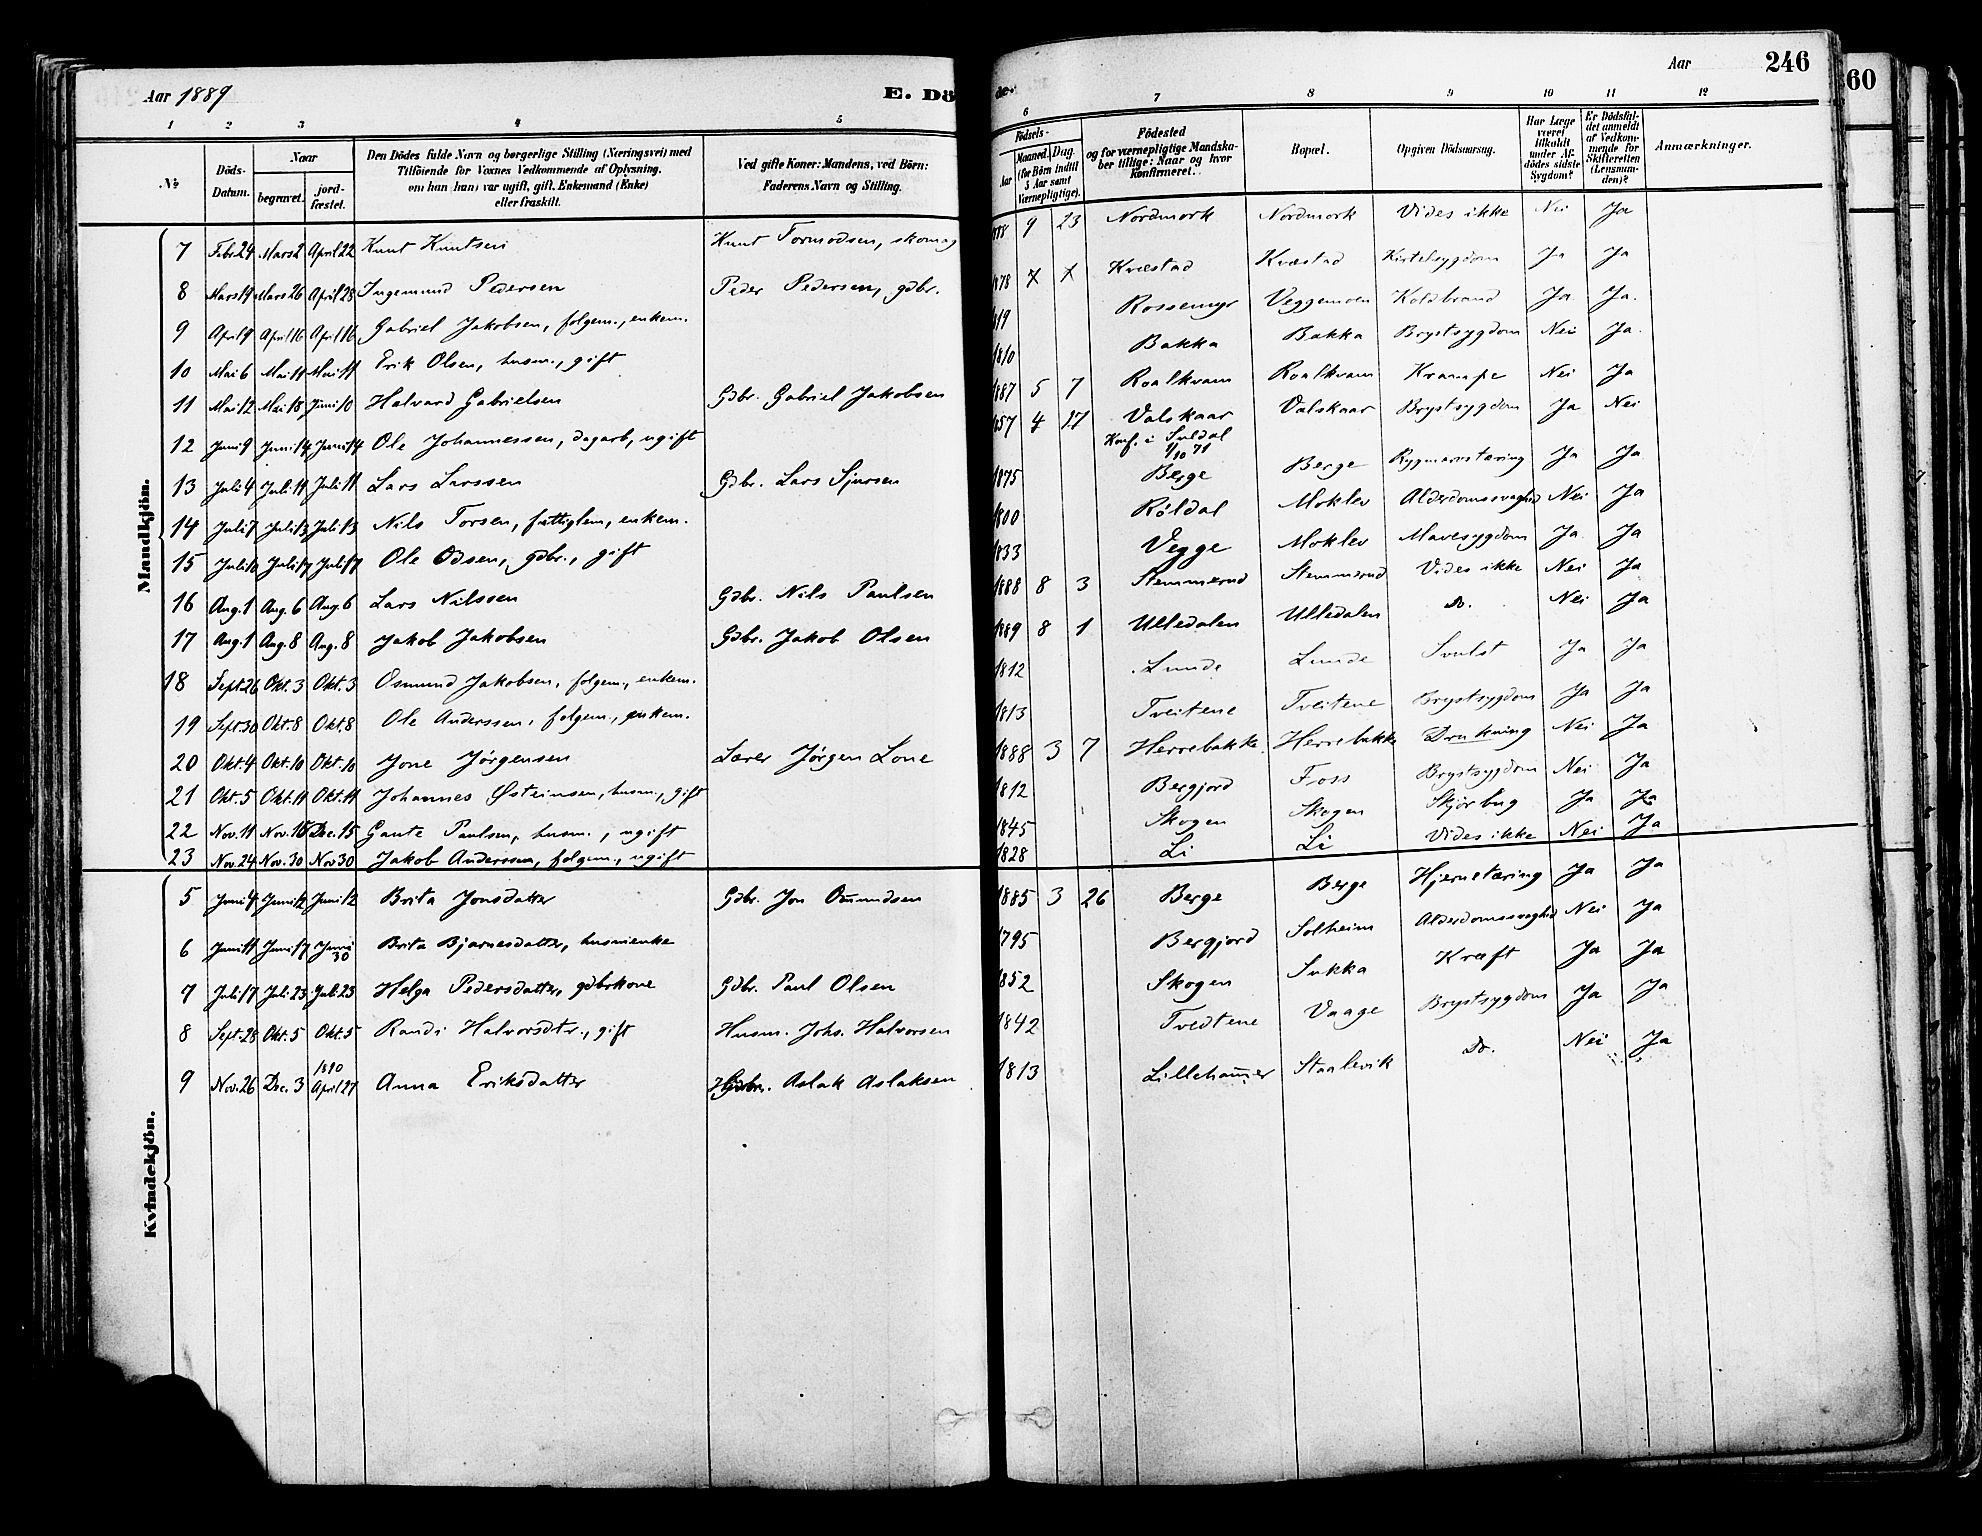 Aar 1889
E. Dö
1 2 3 4 5
№ Döds-Datum. Naar begravet. jord-fæstet. Den Dödes fulde Navn og borgerlige Stilling (Næringsvei) med Tilföiende for Voxnes Vedkommende af Oplysning, om han (hun) var ugift, gift, Enkemand (Enke) eller fraskilt. Ved gifte Koner: Mandens, ved Börn: Faderens Navn og Stilling.
Mandkjön.
7 Febr. 24 Mars 2 April 22 Knut Knutsen Knut Tormodsen, skomag
8 Mars 19 Mars 26 April 28 Ingemund Pedersen Peder Pedersen, gdbr.
9 April 9 April 16 April 16 Gabriel Jakobsen, folgem., enkem.
10 Mai 6 Mai 11 Mai 11 Erik Olsen, husm., gift
11 Mai 12 Mai 18 Juni 10 Halvard Gabrielsen Gdbr. Gabriel Jakobsen
12 Juni 9 Juni 14 Juni 14 Ole Johannessen, dagarb, ugift
13 Juli 4 Juli 11 Juli 11 Lars Larssen Gdbr. Lars Sjursen
14 Juli 7 Juli 13 Juli 13 Nils Torsen, fattiglem, enkem.
15 Juli 10 Juli 17 Juli 17 Ole Odsen, gdbr., gift
16 Aug. 1 Aug. 6 Aug. 6 Lars Nilssen Gdbr. Nils Paulsen
17 Aug. 1 Aug. 8 Aug. 8 Jakob Jakobsen Gdbr. Jakob Olsen
18 Sept. 26 Okt. 3 Okt. 3 Osmund Jakobsen, folgem., enkem.
19 Sept. 30 Okt. 8 Okt. 8 Ole Anderssen, folgem., enkem.
20 Okt. 4 Okt. 10 Okt. 10 Jone Jørgensen Lærer Jørgen Lone
21 Okt. 5 Okt. 11 Okt. 11 Johannes Østeinsen, husm., gift
22 Nov. 11 Nov. 15 Dec. 15 Gaute Paulsen, husm., ugift
23 Nov. 24 Nov. 30 Nov 30 Jakob Anderssen, folgem., ugift
Kvindekjön.
5 Juni 4 Juni 12 Juni 12 Brita Jonsdatter Gdbr. Jon Osmundsen
6 Juni 11 Juni 17 Juni 30 Brita Bjarnesdatter, husmenke
7 Juli 17 Juli 23 Juli 23 Helga Pedersdatter, gdbrkone Gdbr. Paul Olsen
8 Sept. 28 Okt. 5 Okt. 5 Randi Halvorsdtr., gift Husm. Johs. Halvorsen
1890
9 Nov. 26 Dec. 3 April 27 Anna Eriksdatter Aslak Aslaksen
de.
Aar 246
60
6 7 8 9 10 11 12
Födsels- Aar Maaned. Dag. (for Börn indtil 5 Aar samt Værnepligtige). Födested og for værnepligtige Mandskaber tillige: Naar og hvor Konfirmeret. Bopæl. Opgiven Dödsaarsag. Har Læge været tilkaldt under Afdödes sidste Sygdom? Er Dödsfaldet anmeldt af Vedkommende for Skifteretten (Lensmanden)? Anmærkninger.
9 23 Nordmork Nordmork Vides ikke Nei Ja
1878 x x Kvæstad Kvæstad Kirtelsygdom Ja Ja
1819 Rossemyr Veggemoen Koldbrand Ja Ja.
1810 Bakka Bakka Brystsygdom Nei Ja.
1887 5 7 Roalkvam Roalkvam Krampe Nei Ja
1857 4 17 Valskaar Valskaar Brystsygdom Ja Nei
Konf. i Suldal 1/10 71
1875 Berge Berge Rygmarvstæring Ja Ja
1800 Røldal Moklev Alderdomssvaghed Nei Ja
1833 Vegge Moklev Mavesygdom Ja Ja
1888 8 3 Stemmerud Stemmerud Vides ikke Nei Ja
1889 8 1 Ulledalen Ulledalen Do. Nei Ja
1812 Lunde Lunde Svulst Ja Ja
1813 Tveitene Tveitene Brystsygdom Ja Ja
1888 3 7 Herrebakke Herrebakke Drukning Nei Ja
1812 Bergjord Foss Brystsygdom Nei Ja
1845 Skogen Skogen Skjørbug Ja Ja
1828 Li Li Vides ikke Nei Ja
1885 3 26 Berge Berge Hjernetæring Ja Ja
1795 Bergjord Solheim Alderdomssvaghed Nei Ja
1852 Skogen Sukka Kræft Ja Ja
1842 Tvedtene Vaage Brystsygdom Ja Ja
1813 Lillehammer Staalevik Do. Nei Ja